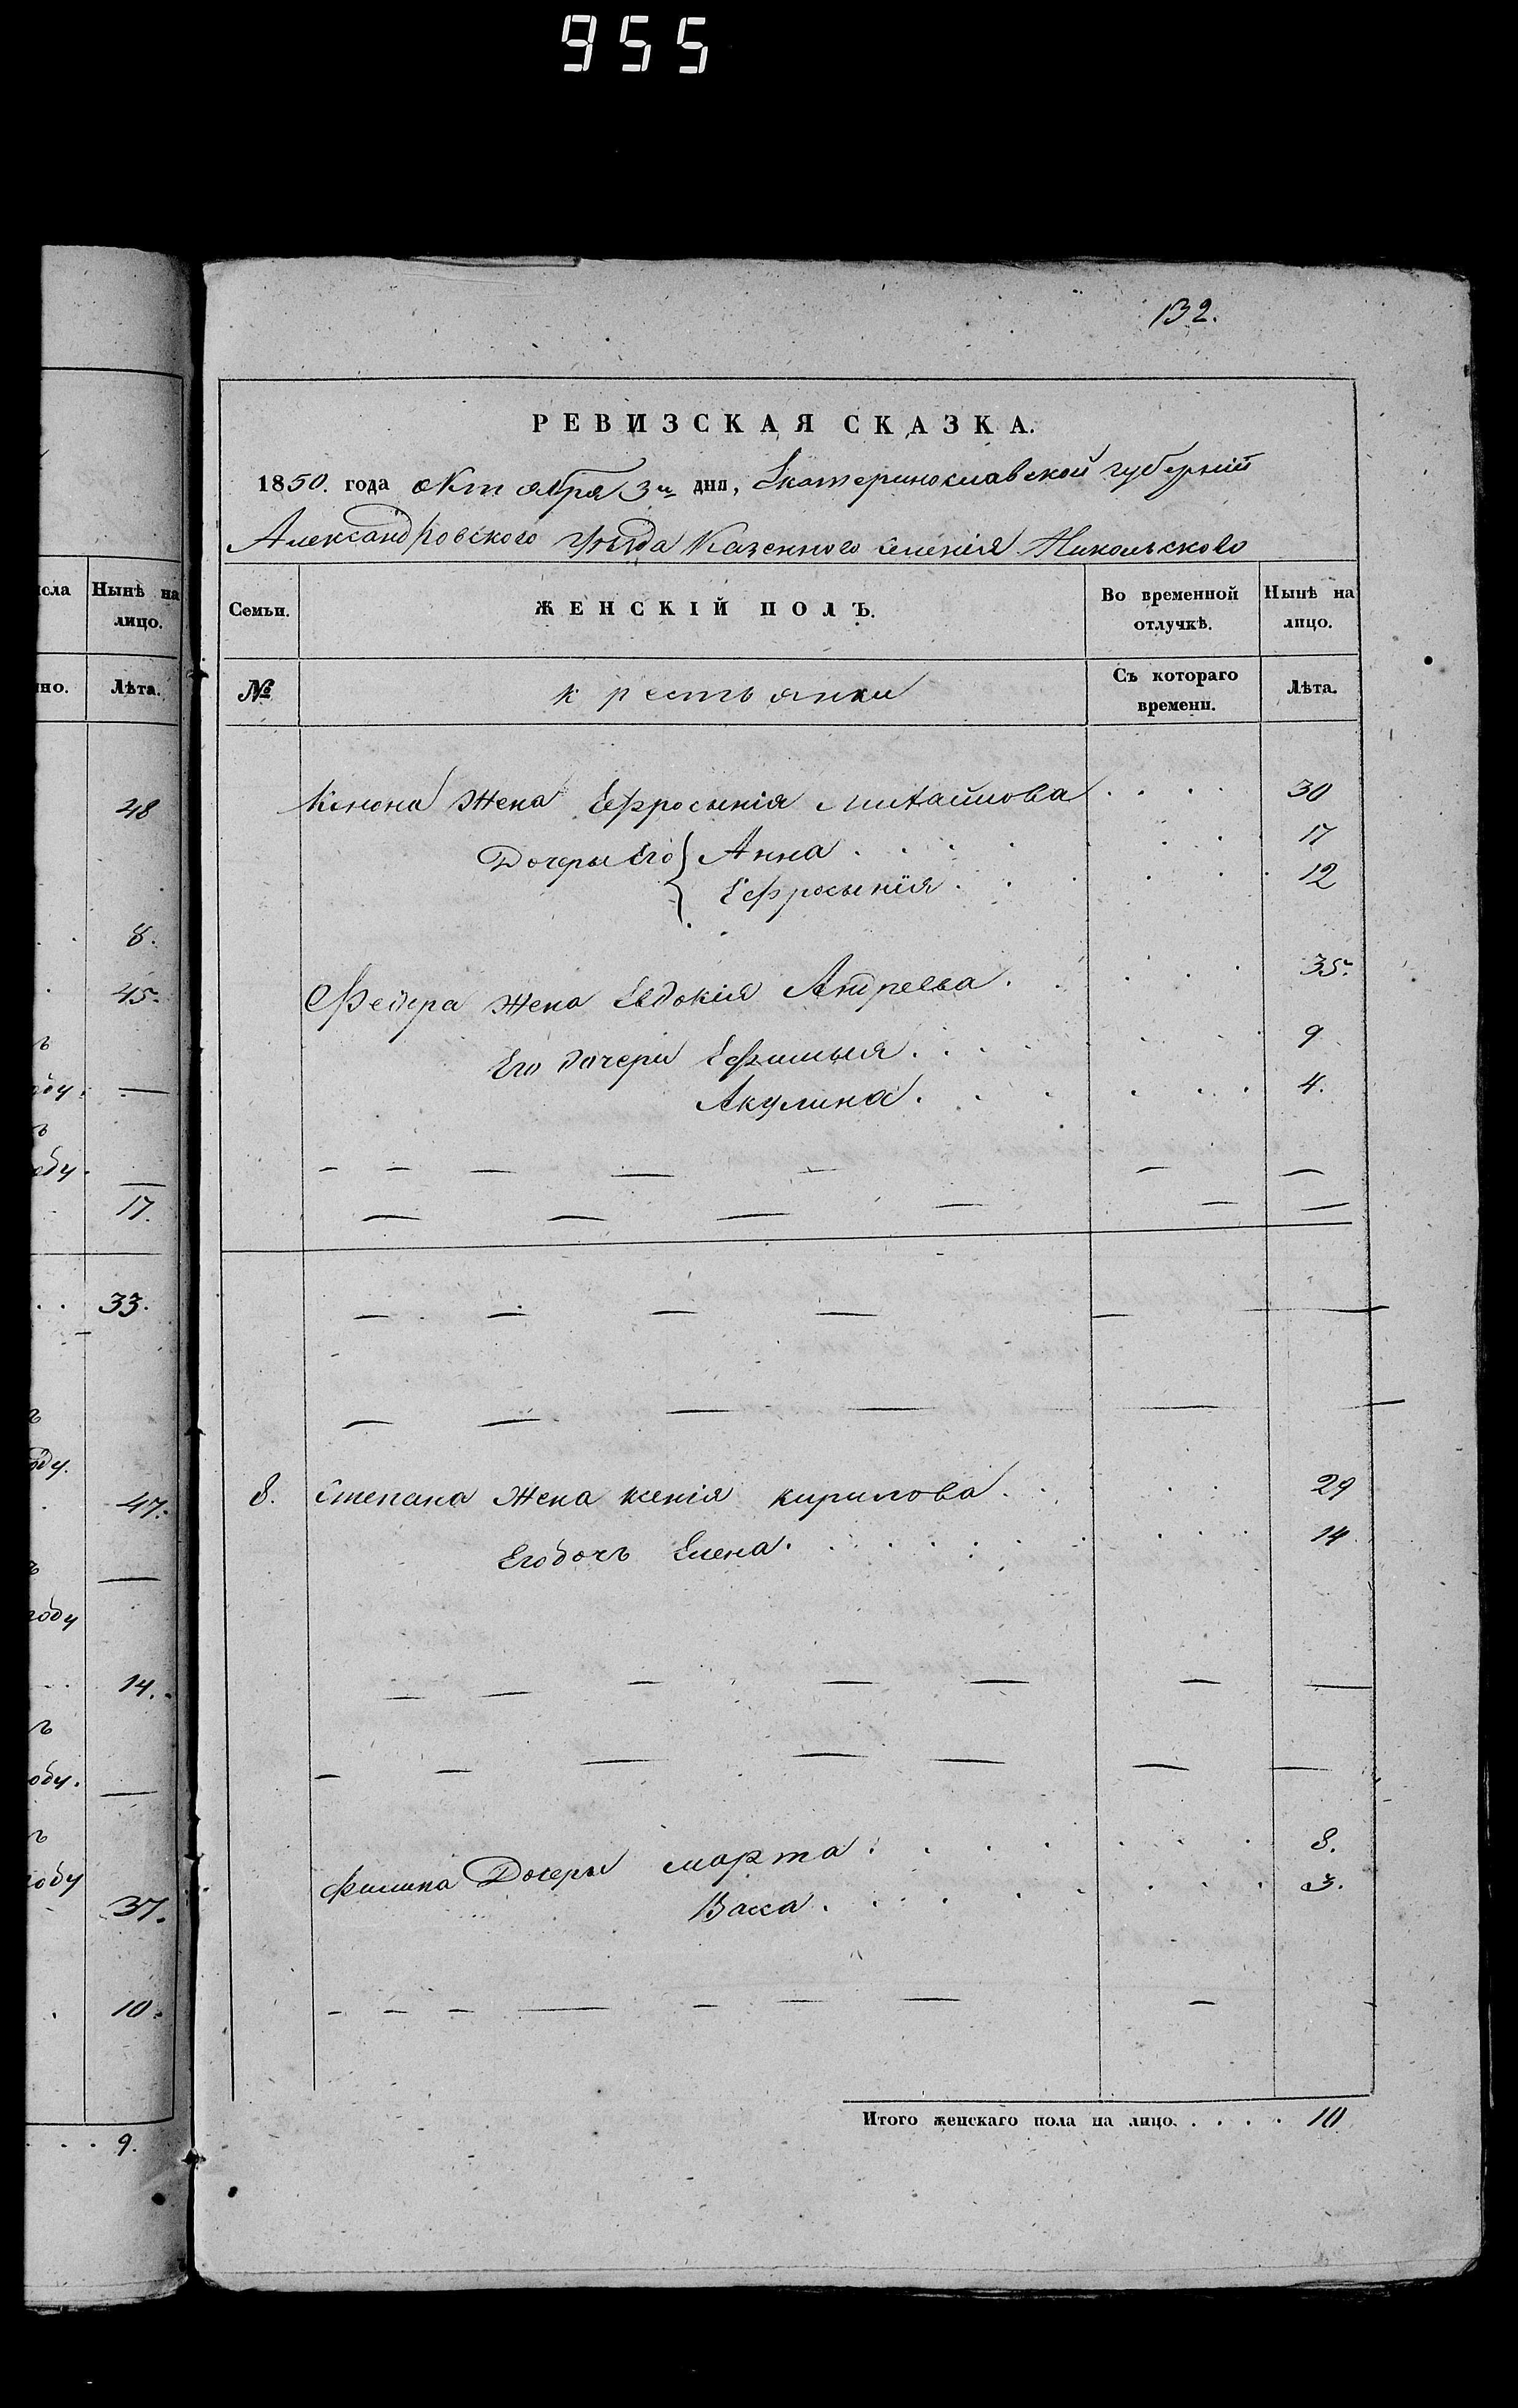 955
132.
РЕВИЗСКАЯ СКАЗКА.
1850. года октября 3го дня, Екатеринославской губерніи
Александровского уѣзда Казенного селенія Никольского
исла
Нынѣ на лицо.
но.
Лѣта.
48
8.
45.
оду. —
оду. —
17.
33.
оду.
47.
—
году
14.
оду. —
году
37.
10.
9.
Семьи.
ЖЕНСКІЙ ПОЛЪ.
Во временной отлучкѣ.
Нынѣ на лицо.
№
крестьянки
Съ котораго времени.
Лѣта.
Конона жена Ефросынія Михайлова . . . . 30
Дочеры его Анна . . . . 17
Ефросынія . . . . 12
Федера жена Евдокія Андреева . . . . 35.
Его дочери Ефимыя . . . . 9
Акулина . . . . 4.
8. Степана жена ксенія кирилова . . . . 29
Его дочь Елена . . . . 14
Филипа Дочеры марта . . . . 8.
Васса . . . . 3.
Итого женскаго пола на лицо. . . . . 10